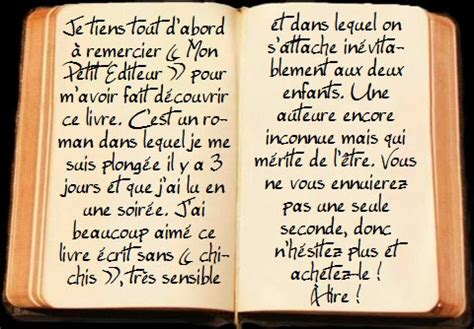 Je tiens tout d'abord
à remercier « Mon
Petit Editeur » pour
m'avoir fait découvrir
ce livre. C'est un ro-
man dans lequel je me
suis plongée il y a 3
jours et que j'ai lu en
une soirée. J'ai
beaucoup aimé ce
livre écrit sans « chi-
chis », très sensible
et dans lequel on
s'attache inévita-
blement aux deux
enfants. Une
auteure encore
inconnue mais qui
mérite de l'être. Vous
ne vous ennuierez
pas une seule
seconde, donc
n'hésitez plus et
achetez-le !
A lire !